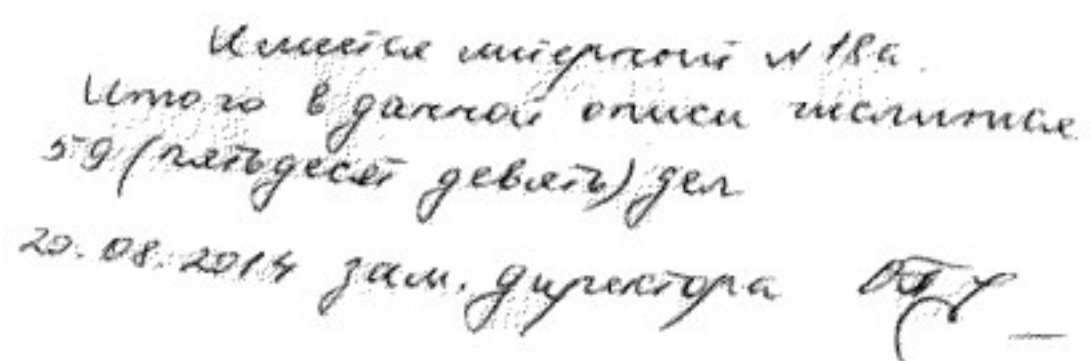 Имеется литерный N 18а.
Итого в данной описи числится
59 (пятьдесят девять) дел
20.08.2014 зам. директора